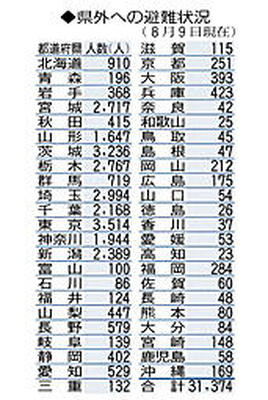 ◆県外への避難状況
(8月9日現在)
都道府県 人数(人)
北海道 910
青森 196
岩手 368
宮城 2,717
秋田 415
山形 1,647
茨城 3,236
栃木 2,767
群馬 719
埼玉 2,994
千葉 2,168
東京 3,514
神奈川 1,944
新潟 2,389
富山 100
石川 86
福井 124
山梨 447
長野 579
岐阜 139
静岡 402
愛知 529
三重 132
滋賀 115
京都 251
大阪 393
兵庫 423
奈良 42
和歌山 25
鳥取 45
島根 47
岡山 212
広島 175
山口 54
徳島 26
香川 37
愛媛 53
高知 23
福岡 284
佐賀 60
長崎 48
熊本 80
大分 84
宮崎 148
鹿児島 58
沖縄 169
合計 31,374